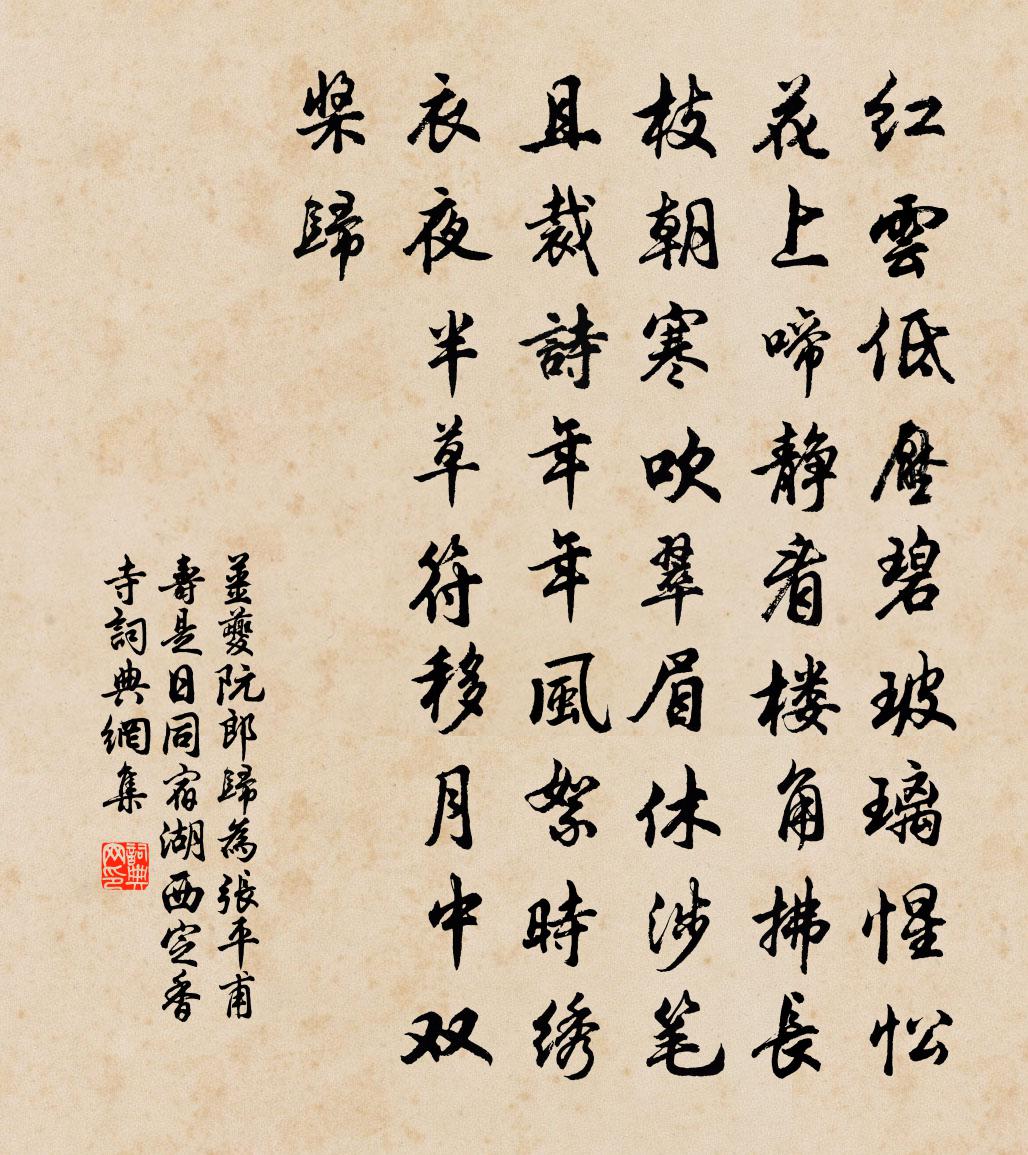 红雲低壓碧玻璃惺忪
花上啼静看楼角拂長
枝朝寒吹翠眉休涉笔
且裁詩年年風絮時绣
衣夜半草符移月中双
槳歸
姜夔阮郎歸為張平甫
壽是日同宿湖西定香
寺詞典網集
詞典网印